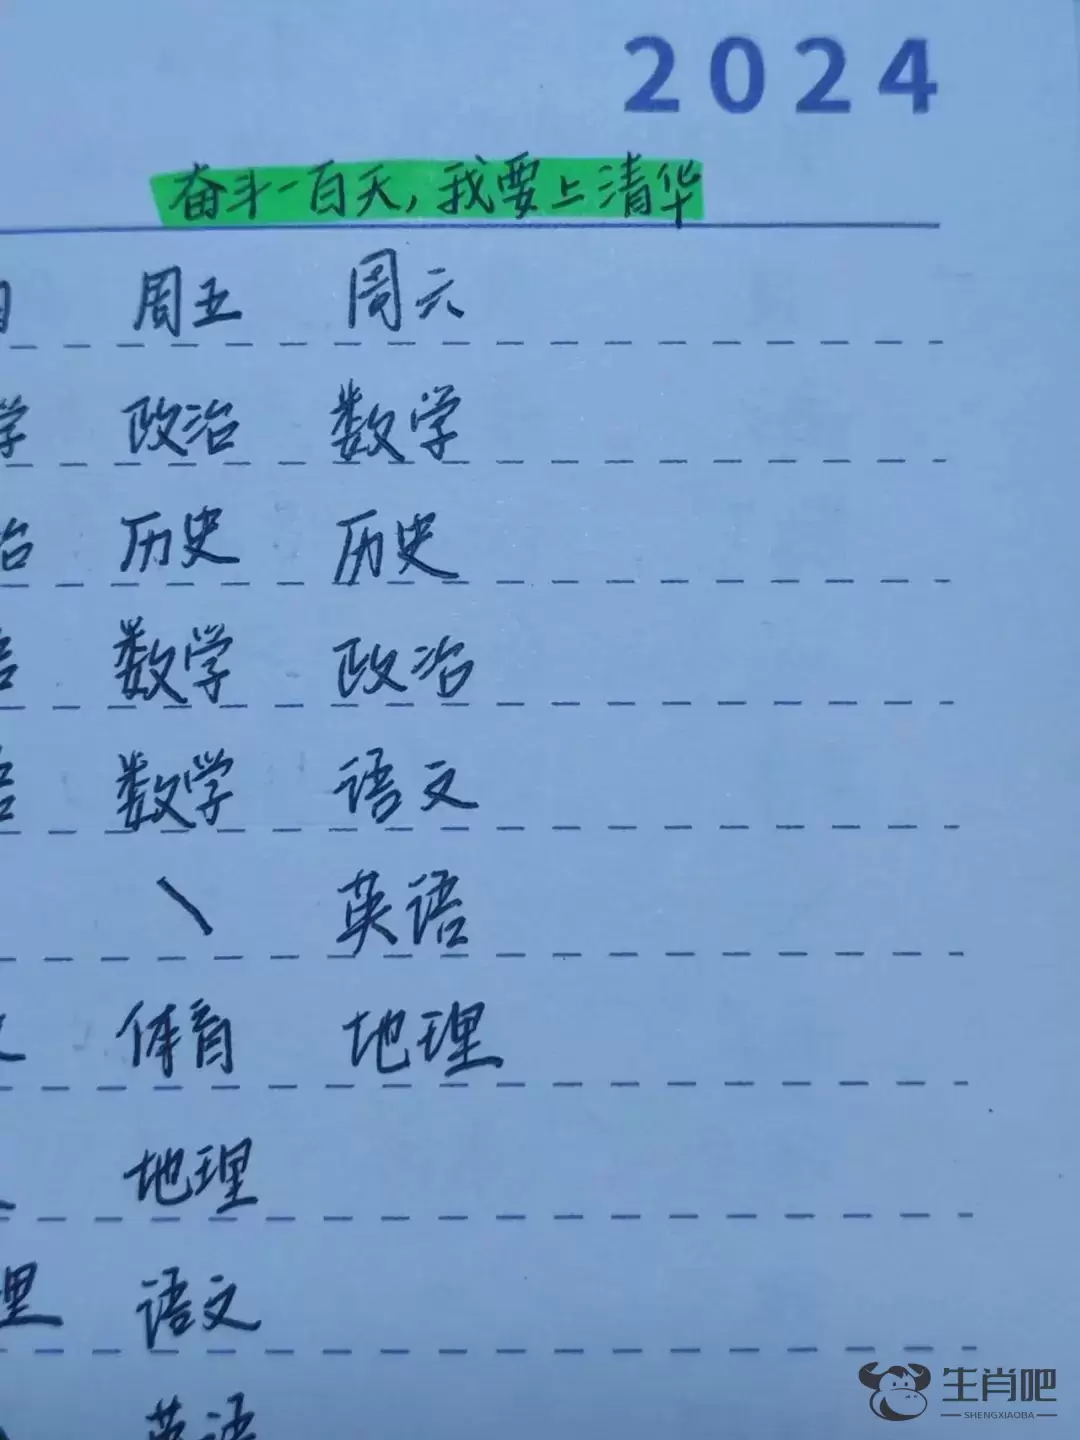 2024
奋斗一百天,我要上清华
周五 周六
学 政治 数学
治 历史 历史
语 数学 政治
语 数学 语文
\ 英语
体育 地理
地理
理 语文
英语
生肖吧
SHENGXIAOBA